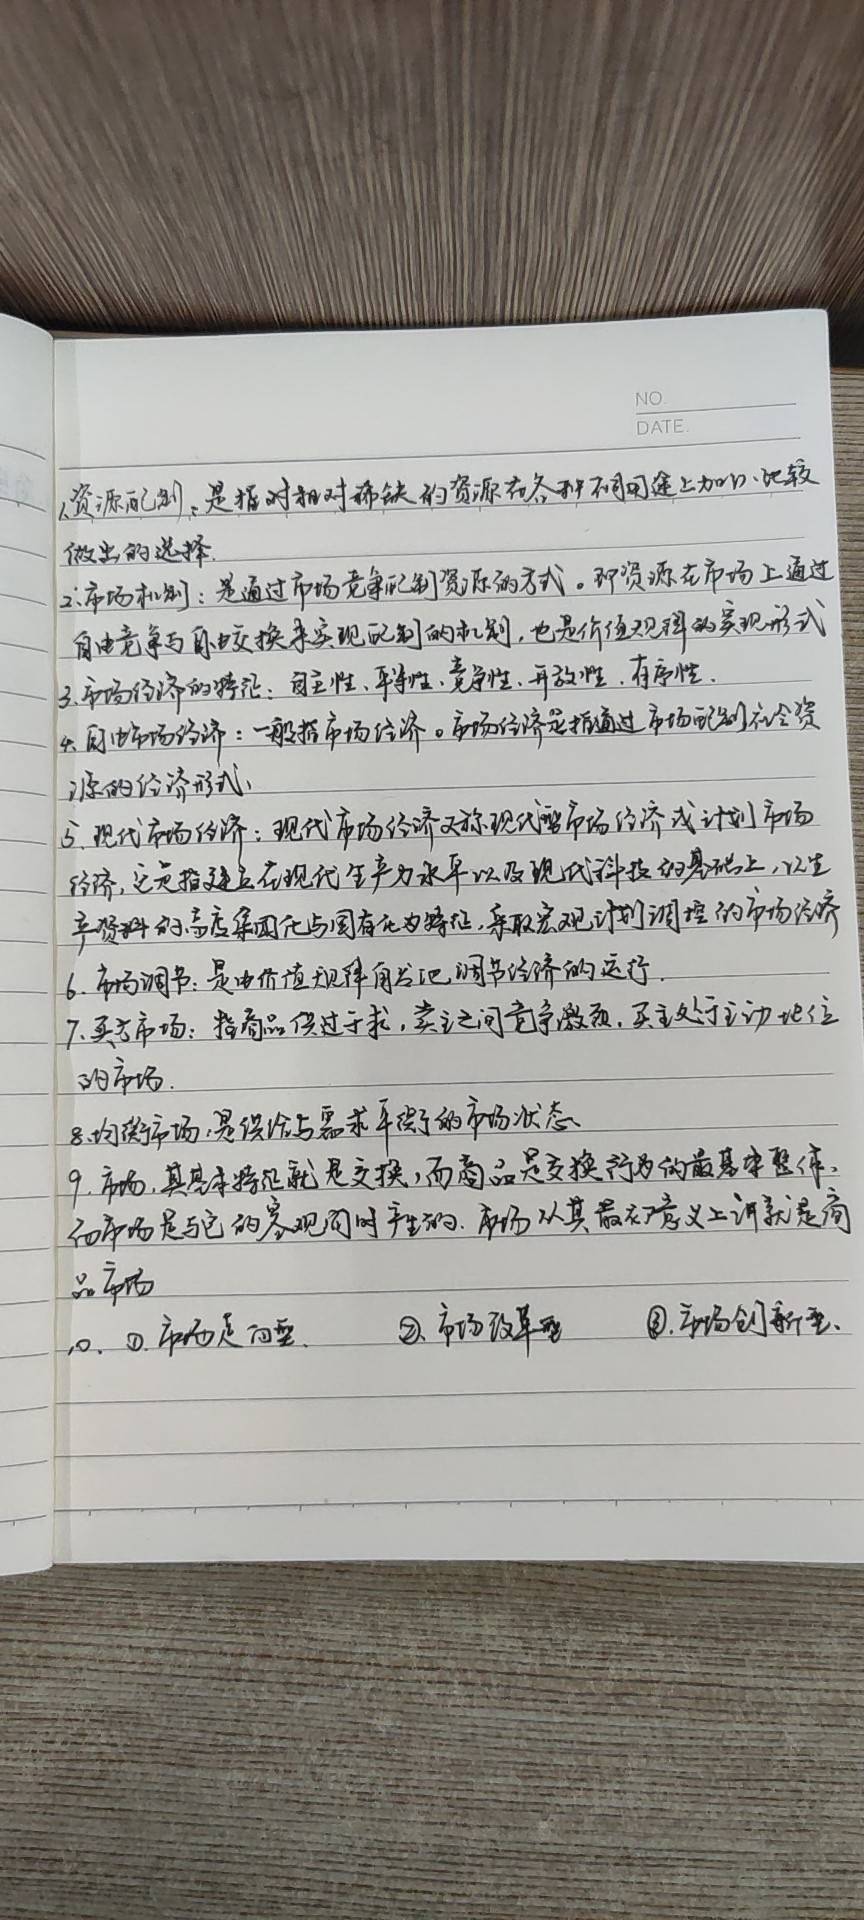 NO.
DATE.
1.资源配制:是指对相对稀缺的资源在各种不同用途上加以比较
做出的选择.
2.市场机制:是通过市场竞争配制资源的方式。即资源在市场上通过
自由竞争与自由交换来实现配制的机制,也是价值规律的实现形式
3.市场经济的特征:自主性、平等性、竞争性、开放性、有序性.
4.自由市场经济:一般指市场经济。市场经济是指通过市场配制社会资
源的经济形式、
5.现代市场经济:现代市场经济又称现代型市场经济或计划市场
经济,它是指建立在现代生产力水平以及现代科技的基础上,以生
产资料的高度集团化与国有化为特征,采取宏观计划调控的市场经济
6.市场调节:是由价值规律自发地调节经济的运行.
7.买方市场:指商品供过于求,卖主之间竞争激烈,买主处于主动地位
的市场.
8.均衡市场,是供给与需求平衡的市场状态、
9.市场,其基本特征就是交换,而商品是交换行为的最基本整体、
而市场是与它的客观同时产生的.市场从其最初意义上讲就是商
品市场
10. ①.市场走向型. ②.市场改革型 ③.市场创新型、